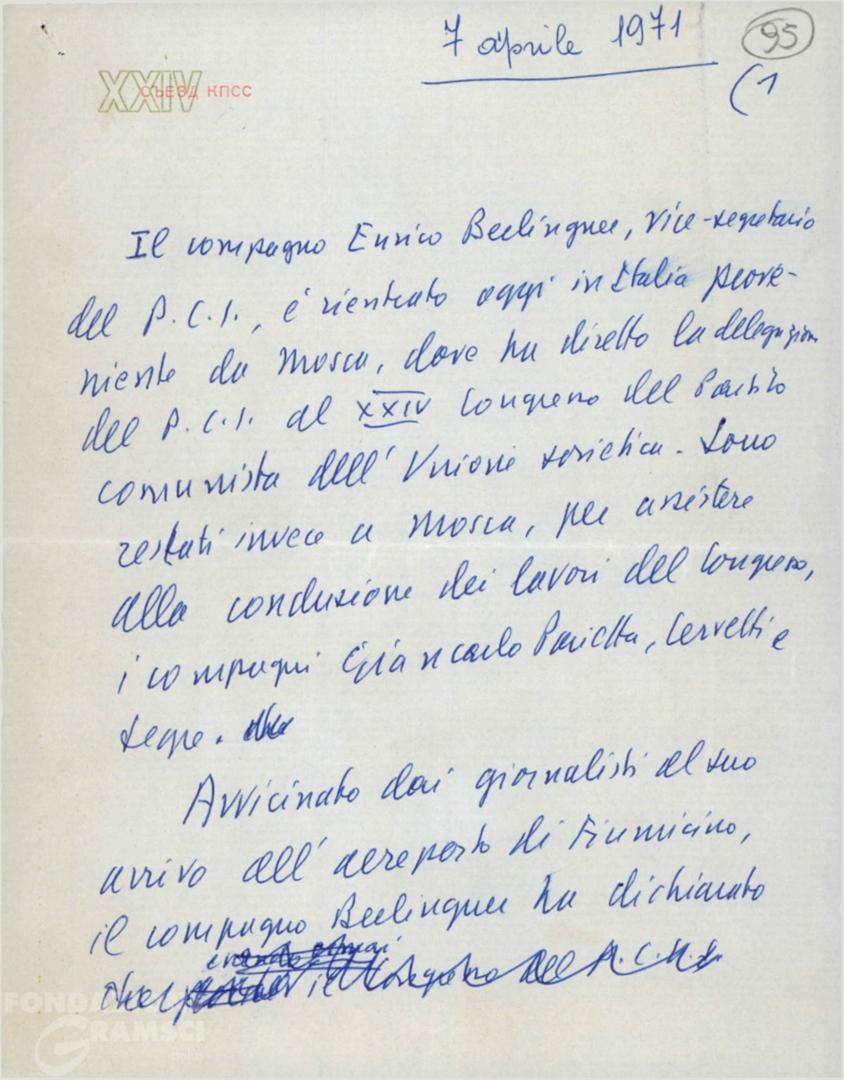 7 aprile 1971
95
(1
XXIV СЪЕЗД КПСС
Il compagno Enrico Berlinguer, vice-segretario
del P.C.I., è rientrato oggi in Italia prove-
niente da Mosca, dove ha diretto la delegazione
del P.C.I. al XXIV Congresso del Partito
comunista dell'Unione sovietica. Sono
restati invece a Mosca, per assistere
alla conclusione dei lavori del Congresso,
i compagni Giancarlo Pajetta, Cervetti e
Segre.
Avvicinato dai giornalisti al suo
arrivo all'aereporto di Fiumicino,
il compagno Berlinguer ha dichiarato
che il Congresso del P.C.U.S.
FONDAZIONE
GRAMSCI